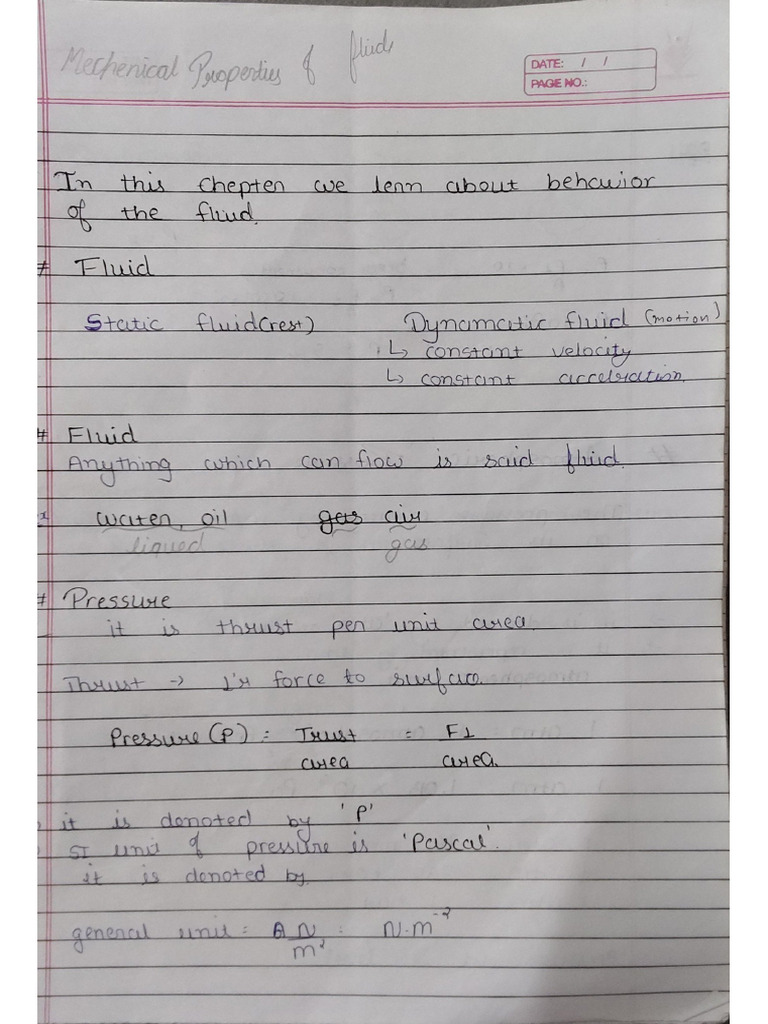 Mechenical Properties of fluid
DATE: / /
PAGE NO.:
In this chepten we lenn about behcuvior
of the fluid.
# Fluid
Static fluid(rest) Dynamatic fluid (motion)
↳ constant velocity
↳ constant accelration.
# Fluid
Anything which can flow is said fluid.
waten, oil gas air
liqued gas
# Pressure
it is thrust pen unit area
Thrust → ⊥'r force to surface.
Pressure(P) = Trust = F⊥
area area.
it is denoted by 'P'
SI unit of pressure is 'Pascal'.
it is denoted by.
general unit = N = N.m⁻²
m²